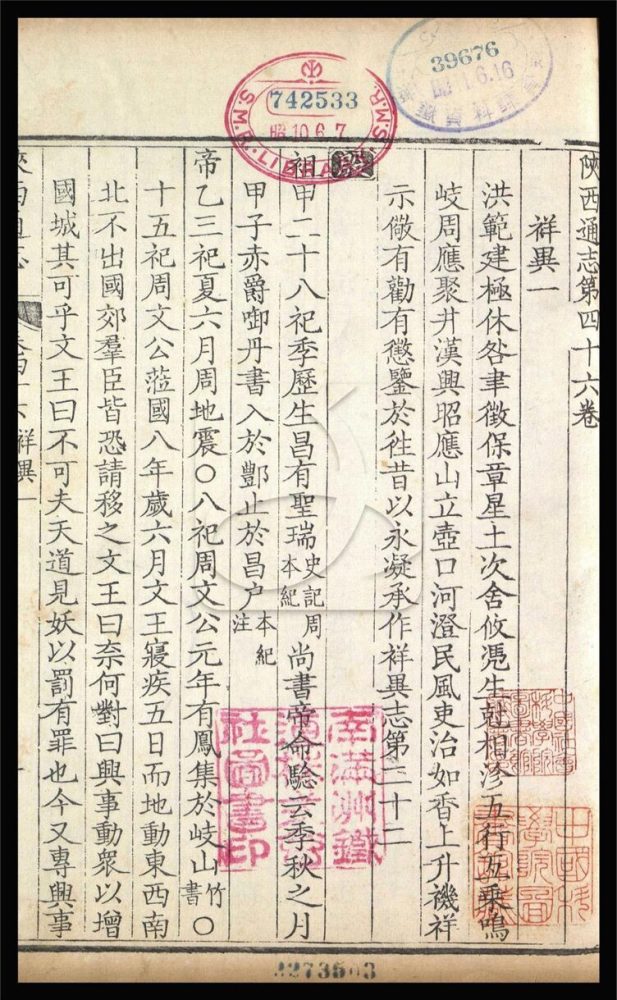 陝西通志第四十六卷
祥異一
洪範建極休咎聿徵保章星土次舍攸憑生尅相沴五行互乗鳴
岐周應聚井漢興昭應山立壺口河澄民風吏治如香上升禨祥
示儆有勸有懲鑒於徃昔以永凝承作祥異志第三十二
祖甲二十八祀季歷生昌有聖瑞史記周本紀尚書帝命驗云季秋之月
甲子赤爵啣丹書入於酆止於昌户本紀注
帝乙三祀夏六月周地震○八祀周文公元年有鳳集於岐山竹書○
十五祀周文公蒞國八年歲六月文王寢疾五日而地動東西南
北不出國郊羣臣皆恐請移之文王曰奈何對曰興事動衆以增
國城其可乎文王曰不可夫天道見妖以罰有罪也今又專興事
陝西通志
祥異一
742533
昭10.6.7
S.M.R. LIBRARY S.M.R.
39676
昭16.16
南滿洲鐵
社圖書印
3273503